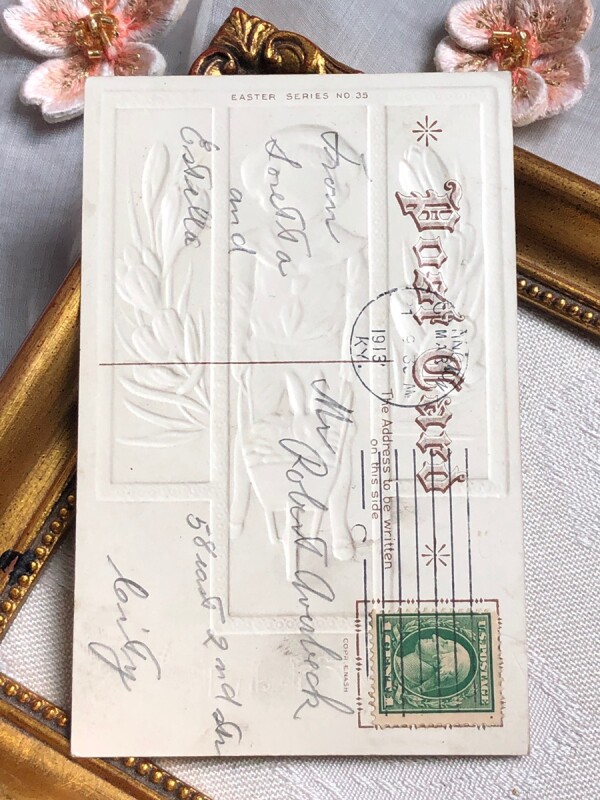 EASTER SERIES NO. 35
Post Card
The Address to be written
on this side
MAR
1913
KY.
From
Loretta
and
Estella
Mr Robert
58 east 2nd Str
City
COPR. E. NASH
U.S. POSTAGE
1 CENT 1